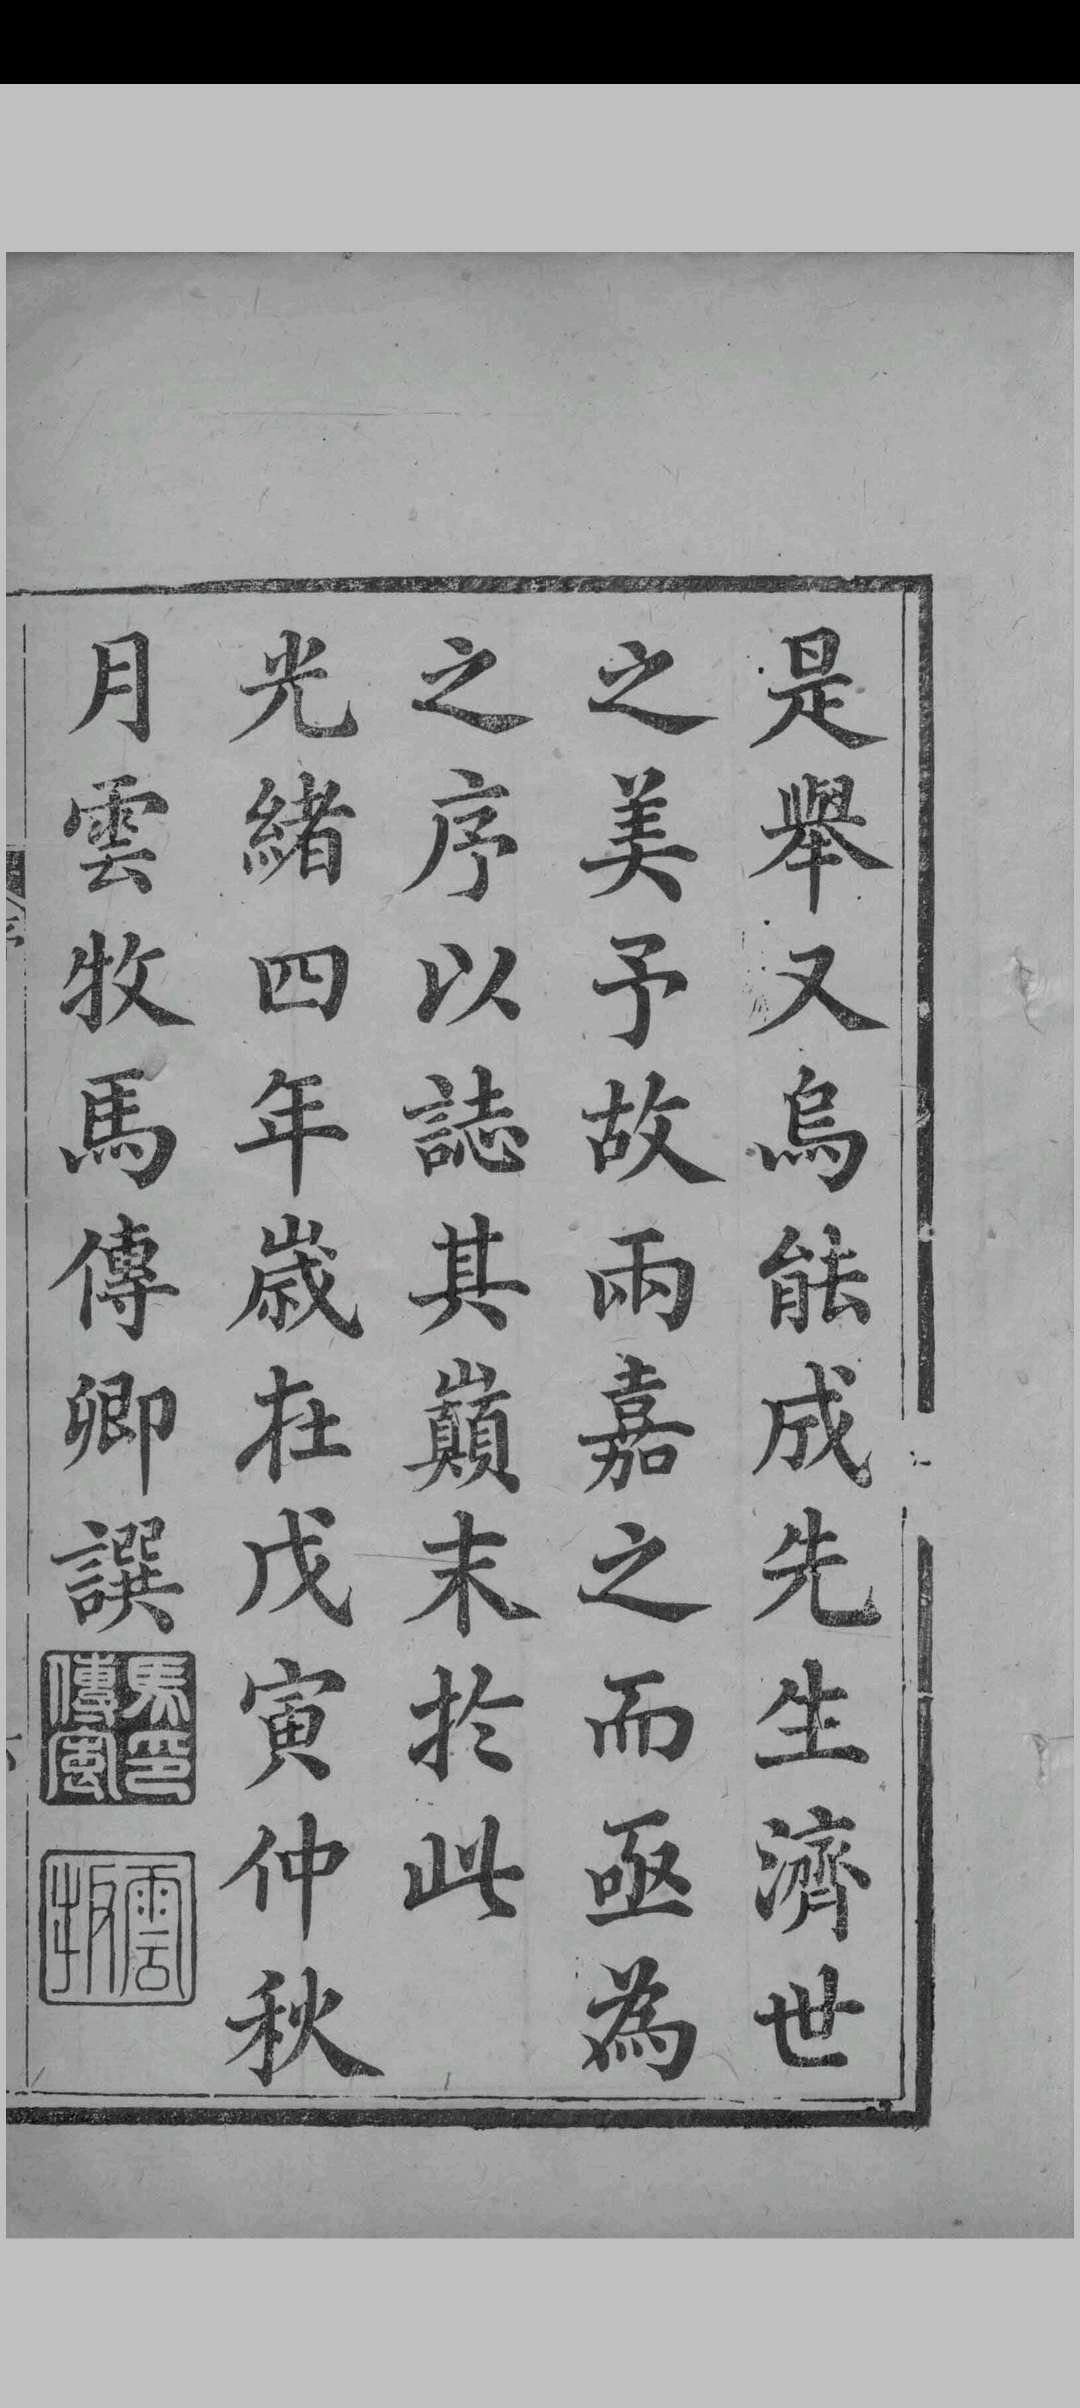 是舉又烏能成先生濟世
之美予故兩嘉之而亟為
之序以誌其巔末於此
光緒四年歲在戊寅仲秋
月雲牧馬傳卿譔
雲牧